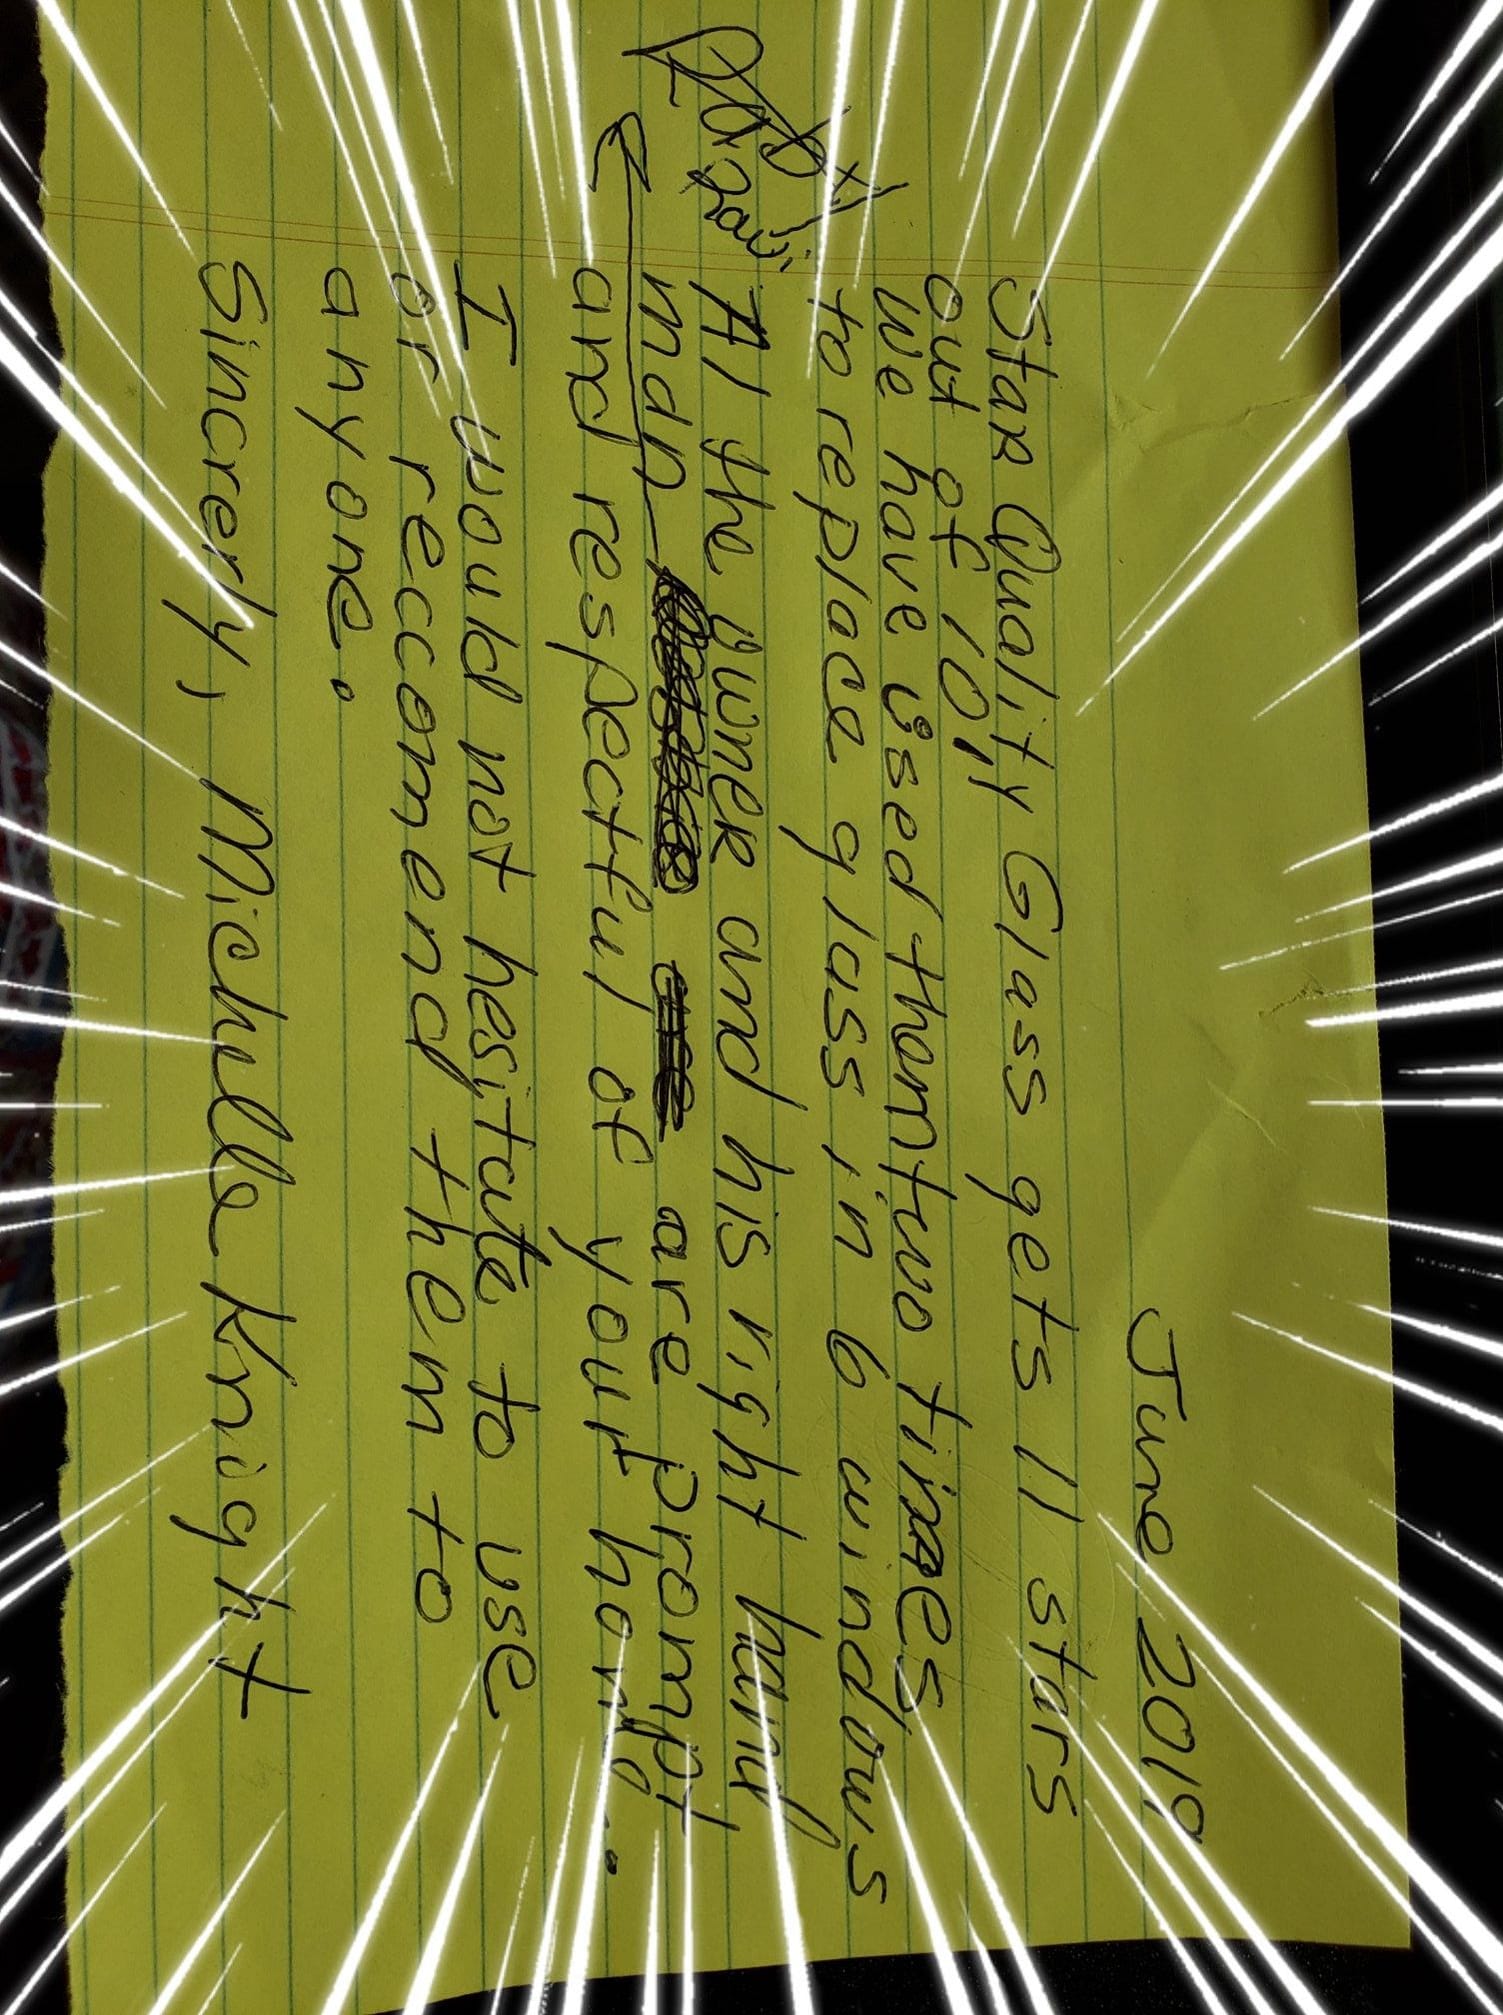 June 2019
Star Quality Glass gets 11 stars
out of 10!!
We have used them two times
to replace glass in 6 windows
Al the owner and his right hand
man are prompt
and respectful of your home.
I would not hesitate to use
or reccomend them to
anyone.
Sincrerly, Michelle Knight